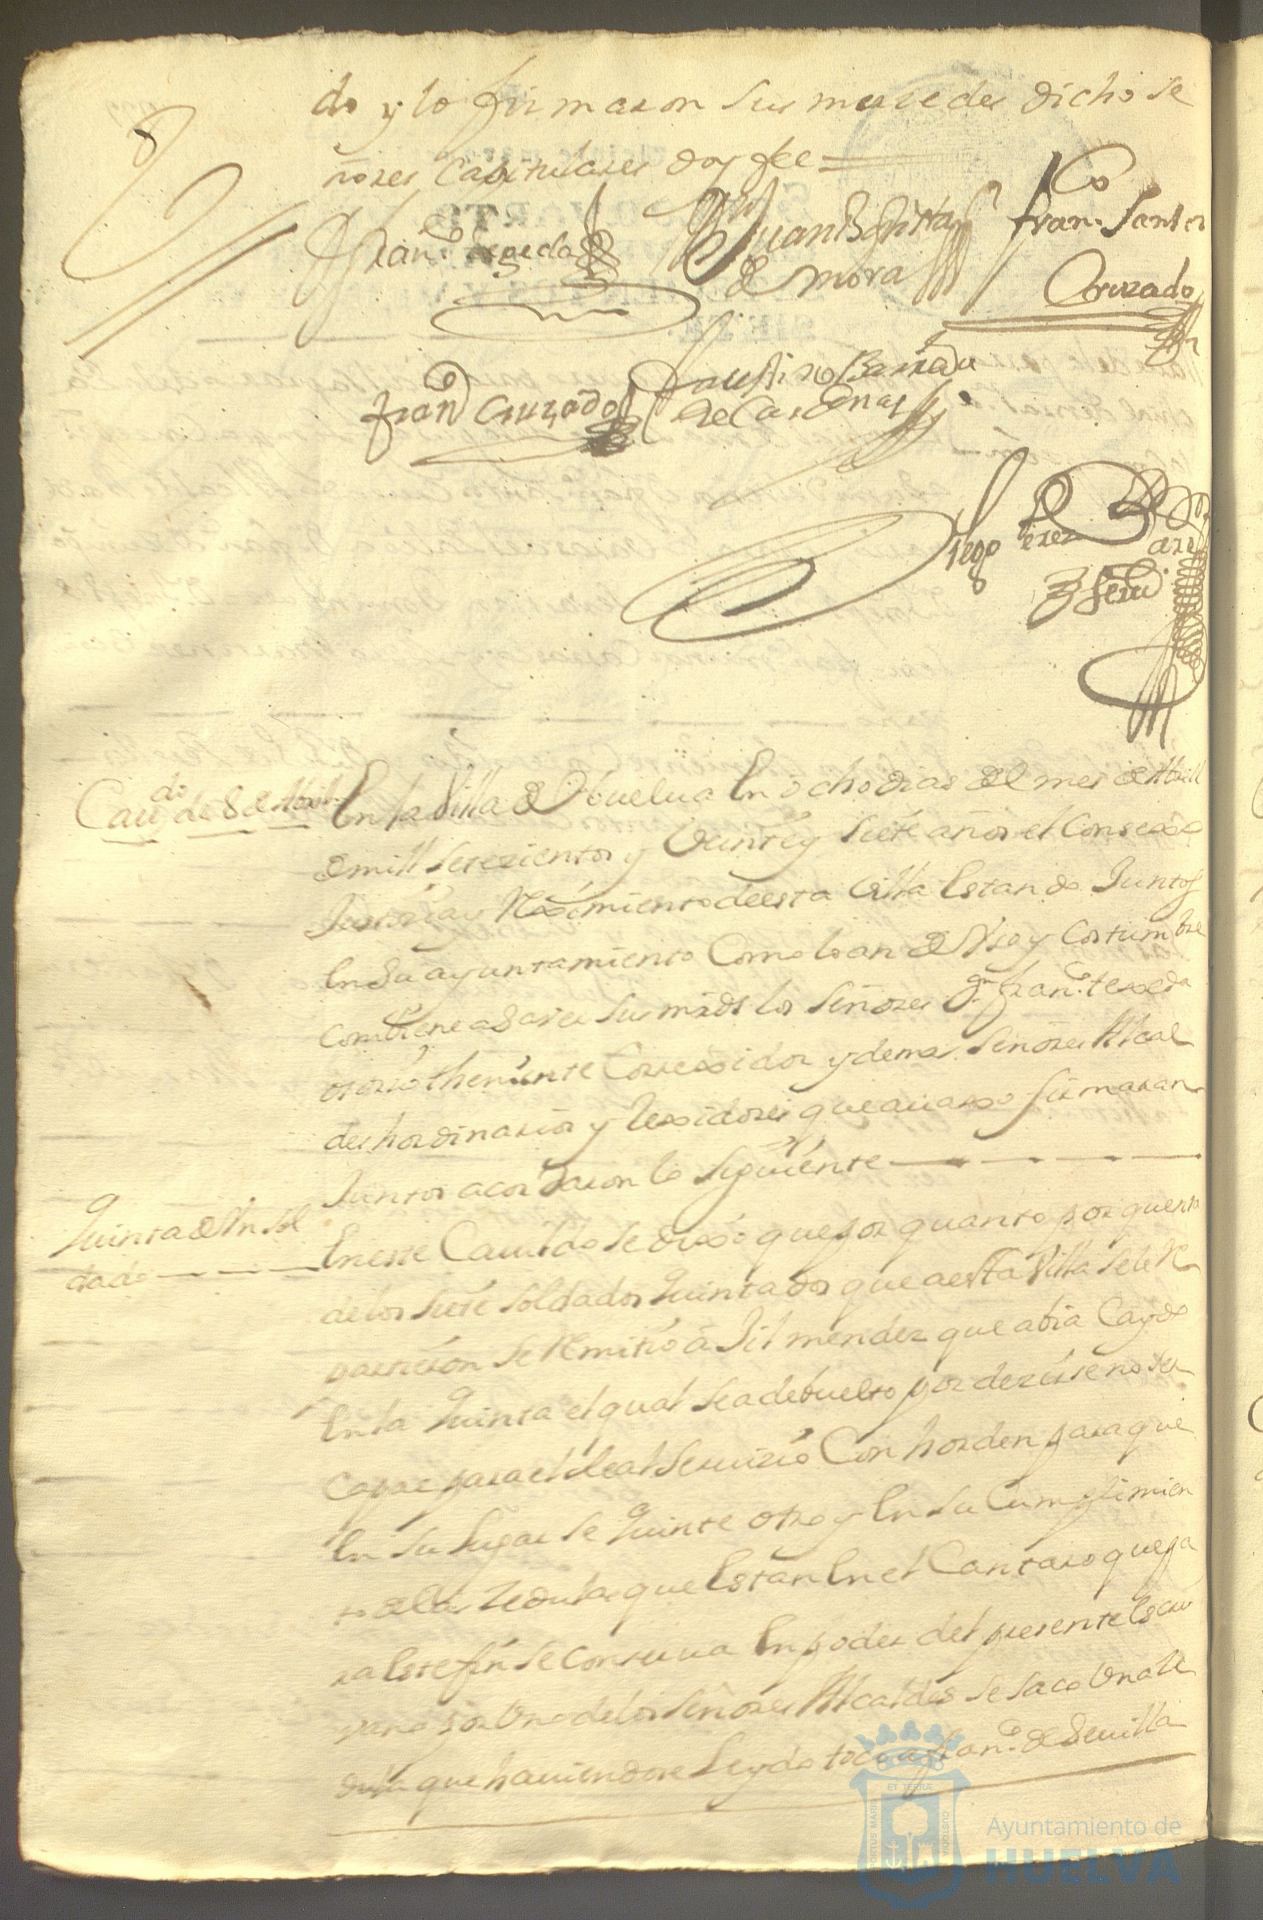 do y lo firmaron sus mercedes dicho se
ñores Capitulares doy fee =
Fran.co texeda
Juan Bp.tta
de mora
Fran.co Santos
Cruzado
Fran.co Cruzado
faustino Barrada
de Cardenas
Diego Perez
Cav.do de 8 de Abril
En la Villa de Huelua En ocho dias del mes de Abrill
de mill setezientos y Veinte y siete años el Consexo
Justizia y Reximiento de esta Villa Estando Juntos
En su ayuntamiento Como lo an de Uso y Costumbre
combiene a sauer sus mrds los señores Dn fran.co texeda
osorio theniente Correxidor y demas señores Alcal
des hordinarios y rexidores que auaxo firmaran
Juntos acordaron lo siguiente
Quinta de Un sol
dado
En este Cauildo se dixo que por quanto por quenta
de los siete soldados Quintados que a esta Villa se le Re
partieron se Remitio a Jil mendez que abia Caydo
En la Quinta el qual se a debuelto por dezirse no ser
Capaz para el Real Seruizio Con horden para que
En su lugar se Quinte otro y En su Cumplimien
to de las zedulas que Estan En el Cantaro que pa
ra Este fin se Conserua En poder del presente Escri
uano por Uno de los Señores Alcaldes se saco Una ze
dula que hauiendose Leydo toco a fran.co de Seuilla
Ayuntamiento de
HUELVA